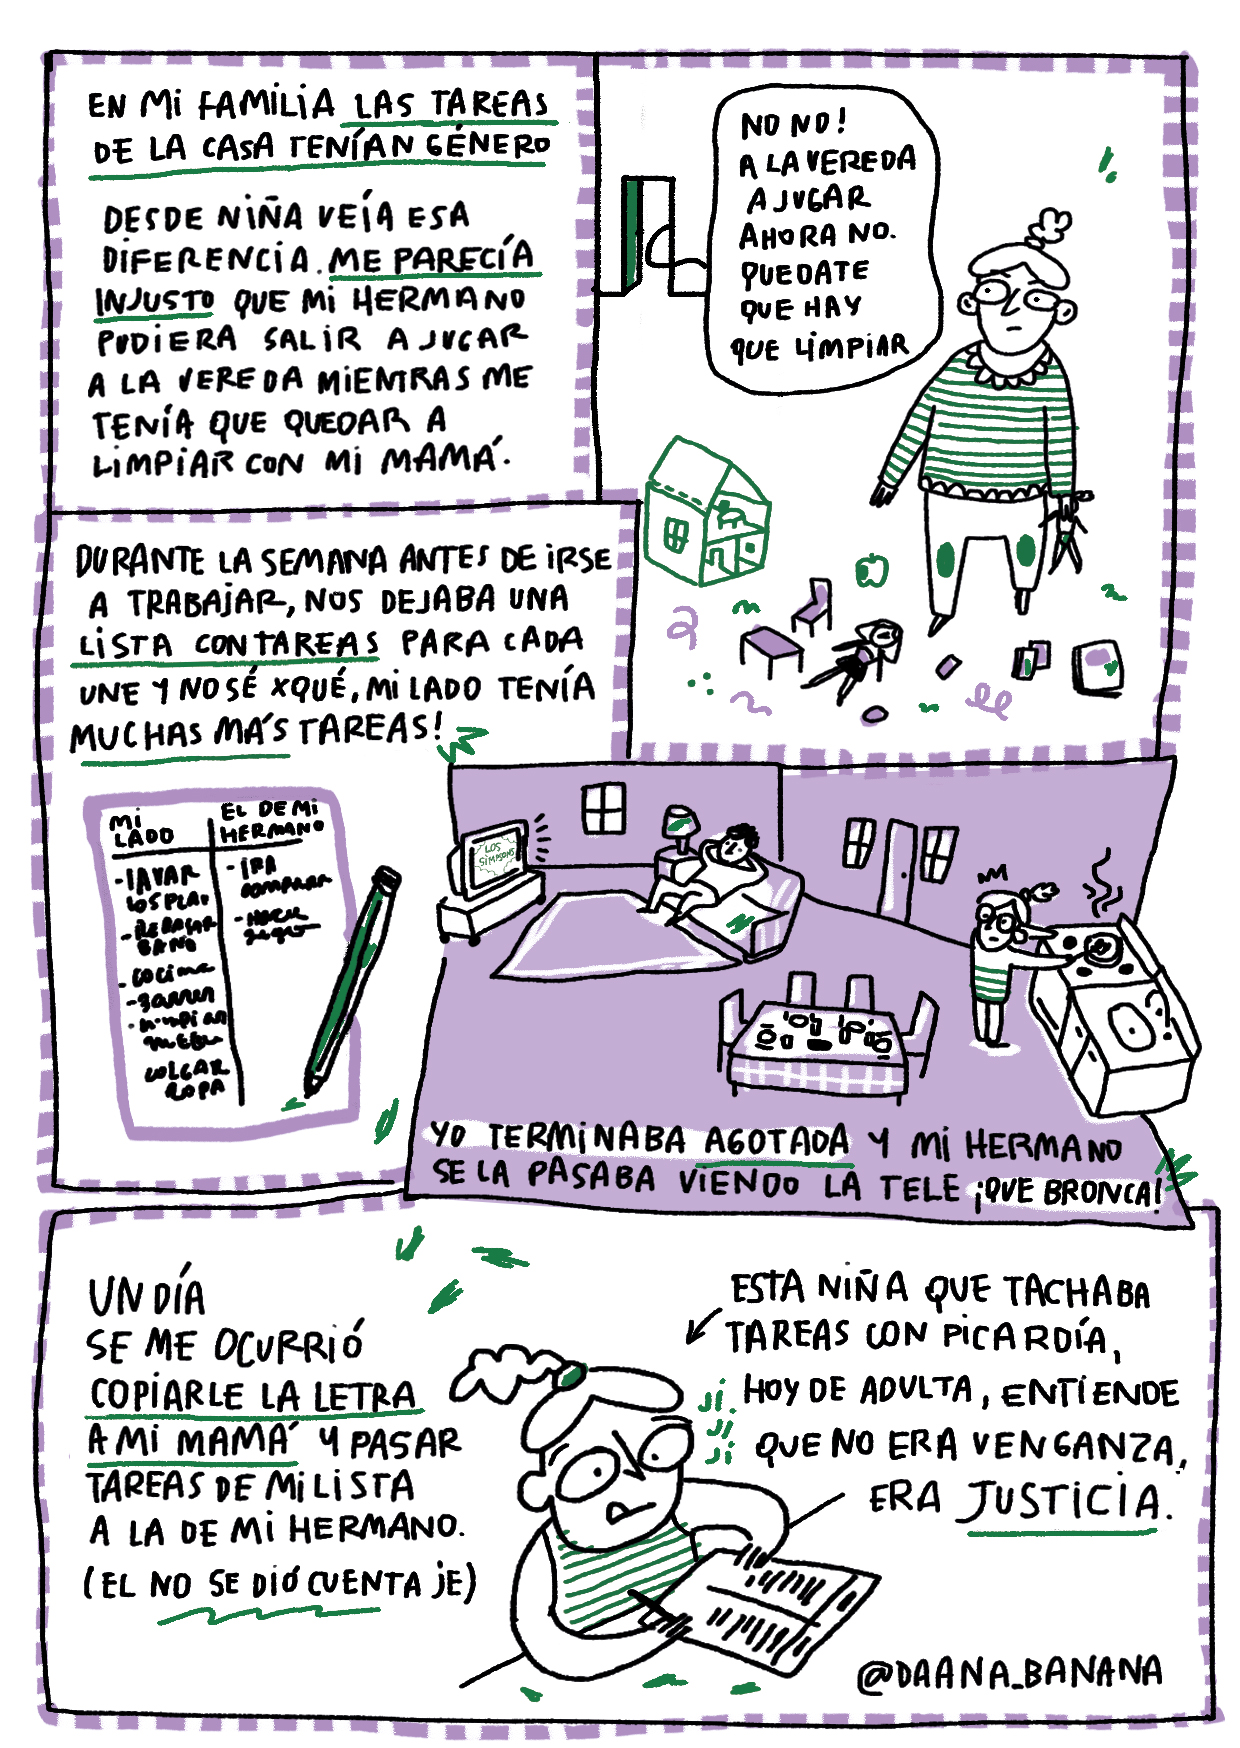 EN MI FAMILIA LAS TAREAS
DE LA CASA TENÍAN GÉNERO
DESDE NIÑA VEÍA ESA
DIFERENCIA. ME PARECÍA
INJUSTO QUE MI HERMANO
PUDIERA SALIR A JUGAR
A LA VEREDA MIENTRAS ME
TENÍA QUE QUEDAR A
LIMPIAR CON MI MAMÁ.
NO NO!
A LA VEREDA
A JUGAR
AHORA NO.
QUEDATE
QUE HAY
QUE LIMPIAR
DURANTE LA SEMANA ANTES DE IRSE
A TRABAJAR, NOS DEJABA UNA
LISTA CON TAREAS PARA CADA
UNE Y NO SÉ XQUÉ, MI LADO TENÍA
MUCHAS MÁS TAREAS!
MI
LADO
- LAVAR
LOS PLA
BAÑO
- COCINA
- BARRER
COLGAR
ROPA
EL DE MI
HERMANO
- IR A
COMPRAR
LOS
SIMPSONS
YO TERMINABA AGOTADA Y MI HERMANO
SE LA PASABA VIENDO LA TELE ¡QUE BRONCA!
UN DÍA
SE ME OCURRIÓ
COPIARLE LA LETRA
A MI MAMÁ Y PASAR
TAREAS DE MI LISTA
A LA DE MI HERMANO.
(EL NO SE DIÓ CUENTA JE)
ESTA NIÑA QUE TACHABA
TAREAS CON PICARDÍA,
HOY DE ADULTA, ENTIENDE
QUE NO ERA VENGANZA,
ERA JUSTICIA.
JI.
JI
JI
@DAANA_BANANA